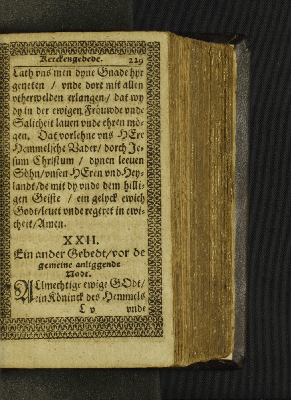 Kerckengebede. 229
Lath vns men dyne Gnade hyr
geneten / vnde dort mit allen
vtherwelden erlangen / dat wy
dy in der ewigen Fröuwde vnde
Salicheit lauen vnde ehren mö-
gen. Dat vorlehne vns HEre
Hemmelsche Vader / dorch Je-
sum Christum / dynen leeuen
Söhn / vnsen HEren vnd Hey-
landt / de mit dy vnde dem hilli-
gen Geiste / ein gelyck ewich
Godt / leuet vnde regeret in ewi-
cheit / Amen.
XXII.
Ein ander Gebedt / vor de
gemeine anliggende
Nodt.
ALlmechtige ewige GOdt /
ein Köninck des Hemmels
L v vnde